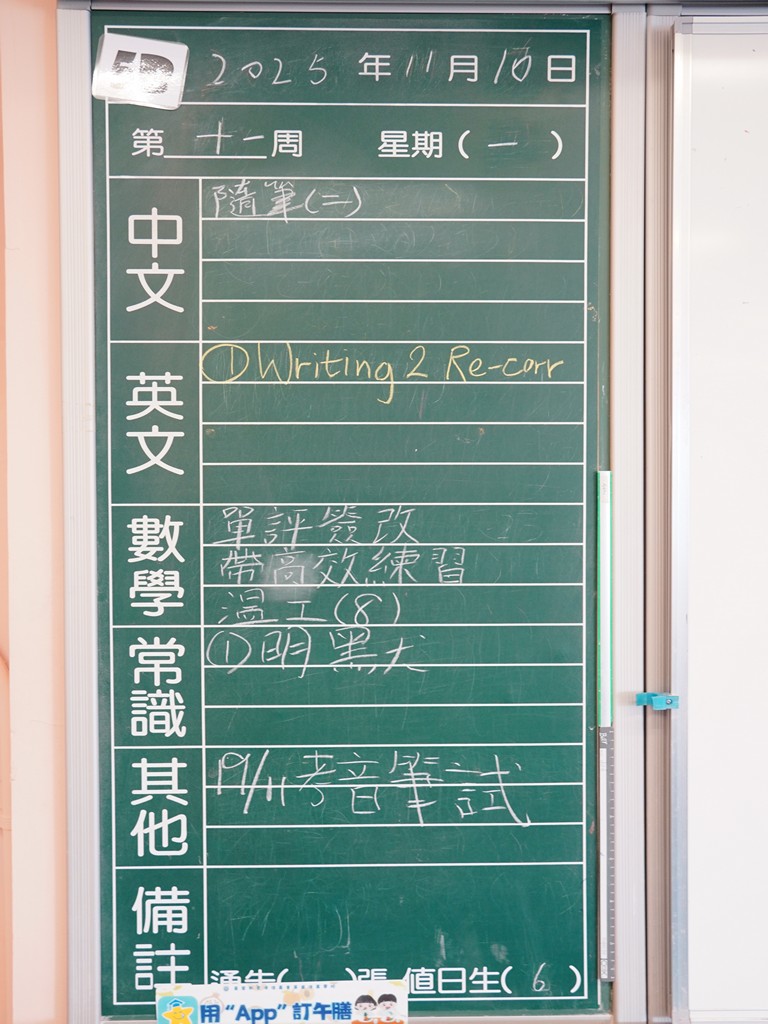 5D
2025年11月10日
第十一周 星期(一)
中文
隨筆(二)
英文
①Writing 2 Re-corr
數學
單評簽改
帶高效練習
溫工(8)
常識
①明黑犬
其他
19/11考音筆試
備註
通告( )張 值日生(6)
用“App”訂午膳